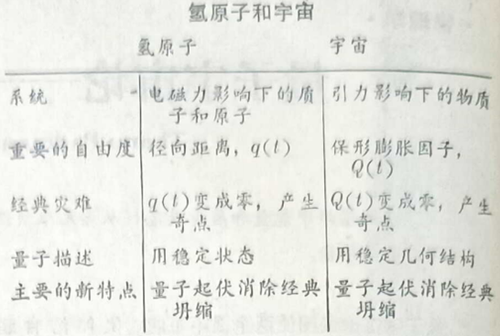 氢原子和宇宙
氢原子 宇宙
系统 电磁力影响下的质 引力影响下的物质
子和原子
重要的自由度 径向距离，q(t) 保形膨胀因子，
Q(t)
经典灾难 q(t)变成零，产生 Q(t)变成零，产生
奇点 奇点
量子描述 用稳定状态 用稳定几何结构
主要的新特点 量子起伏消除经典 量子起伏消除经典
坍缩 坍缩